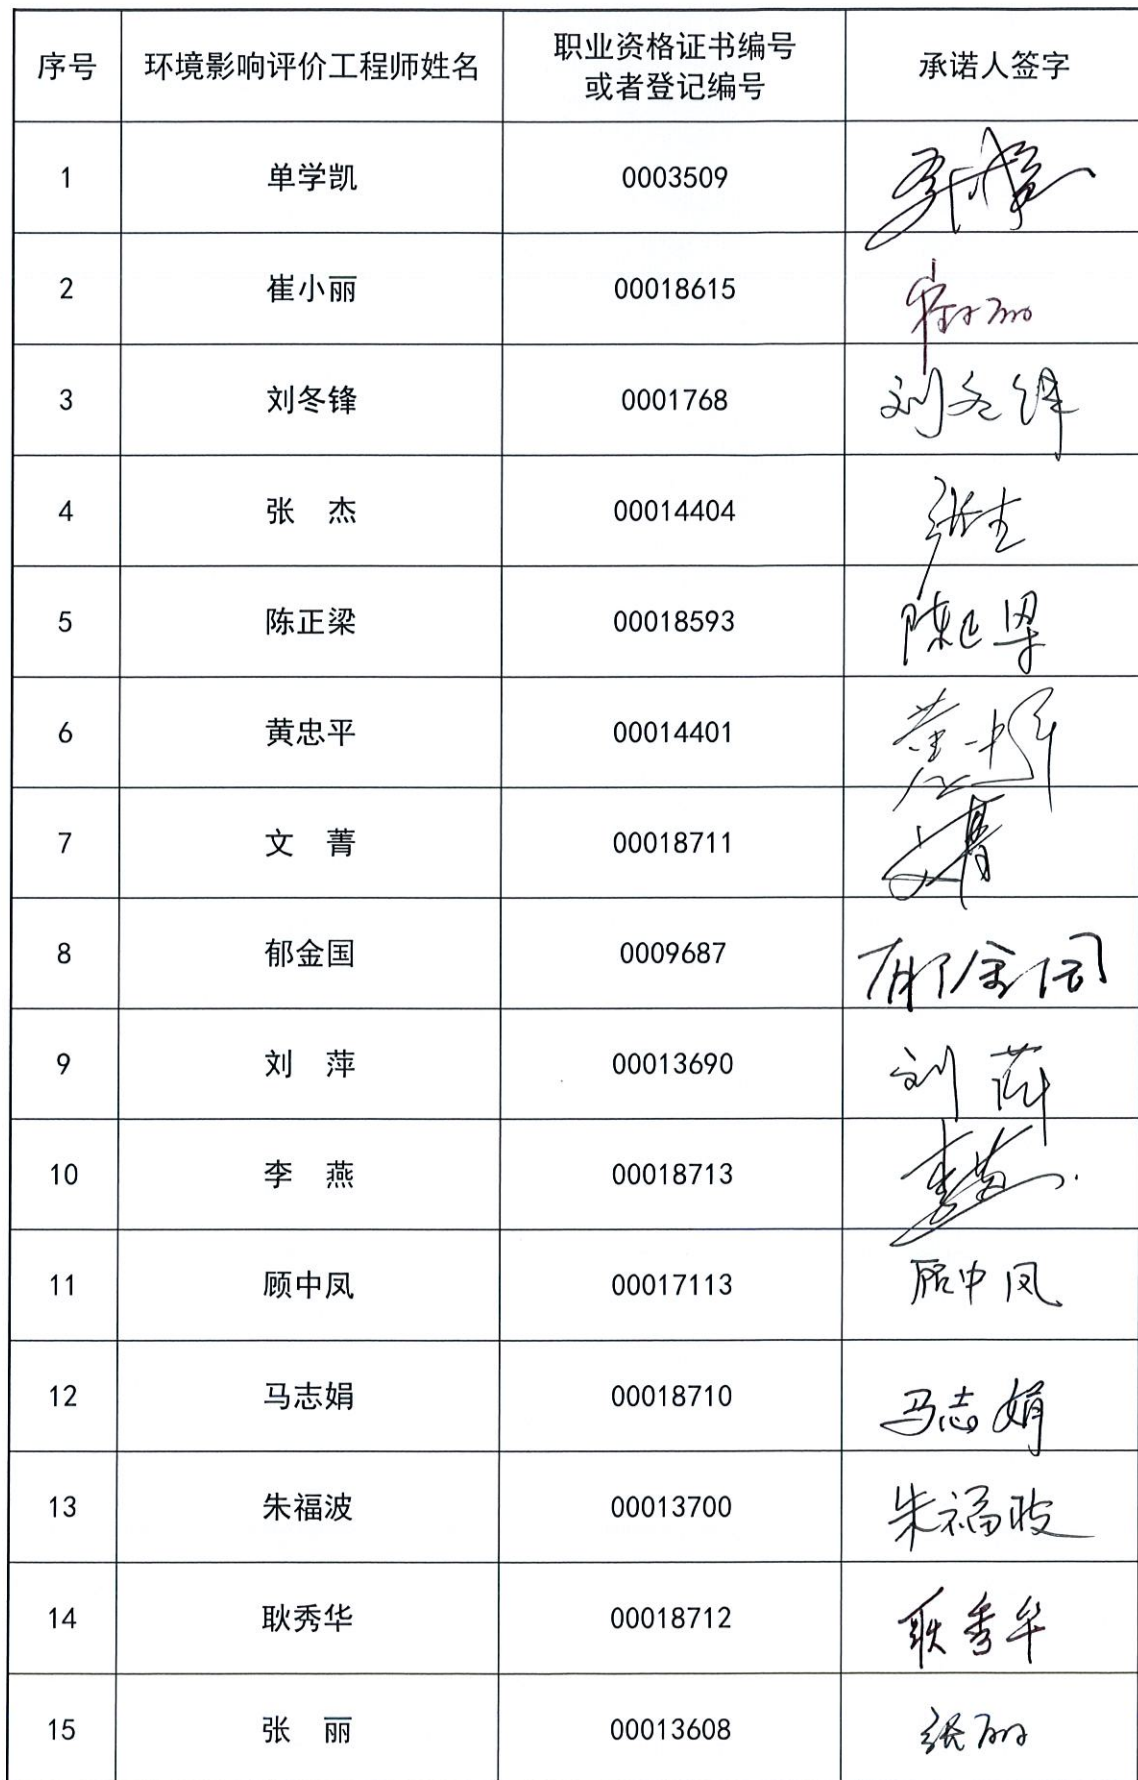 序号 环境影响评价工程师姓名 职业资格证书编号 承诺人签字
或者登记编号
1 单学凯 0003509
2 崔小丽 00018615
3 刘冬锋 0001768 刘冬锋
4 张 杰 00014404 张杰
5 陈正梁 00018593 陈正梁
6 黄忠平 00014401
7 文 菁 00018711 文菁
8 郁金国 0009687 郁金国
9 刘 萍 00013690 刘萍
10 李 燕 00018713 李燕
11 顾中凤 00017113 顾中凤
12 马志娟 00018710 马志娟
13 朱福波 00013700 朱福波
14 耿秀华 00018712 耿秀华
15 张 丽 00013608 张丽